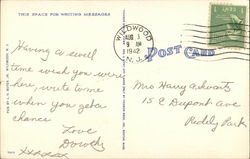 THIS SPACE FOR WRITING MESSAGES
Having a swell
time wish you were
here, write to me
when you get a
chance
Love
Dorothy
xxxxxx
WILDWOOD
AUG 3
9 AM
1942
N.J.
POST CARD
1¢
Mrs Harry
15 E Dupont ave
Ridley Park